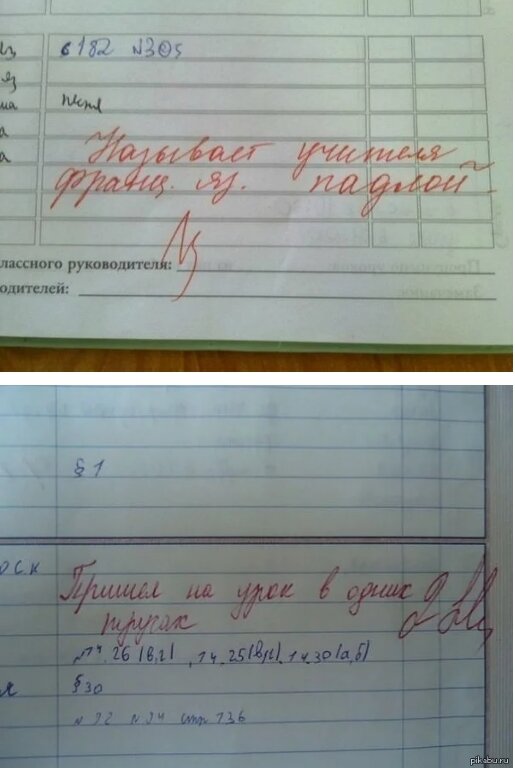 с 182 №305
яз
песня
Называет учителя
франц. яз. падлой.
лассного руководителя:
одителей:
§ 1
Пришел на урок в одних 2
трусах
14.26 (в,г), 14.25 (в,г), 14.30 (а,б)
§ 30
№ 92 № 94 стр 136
pikabu.ru